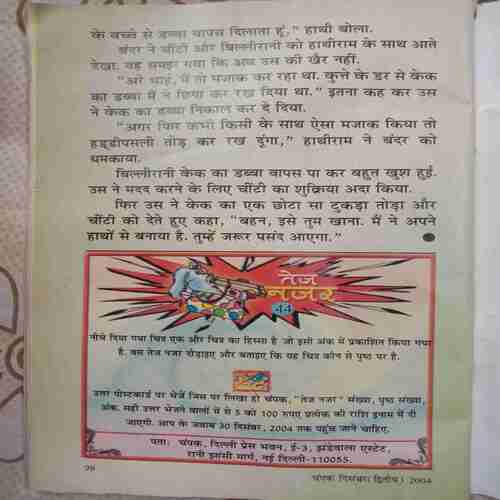 के बच्चे से डब्बा वापस दिलाता हूं," हाथी बोला.
बंदर ने चींटी और बिल्लीरानी को हाथीराम के साथ आते
देखा. वह समझ गया कि अब उस की खैर नहीं.
"अरे भाई, मैं तो मजाक कर रहा था. कुत्ते के डर से केक
का डब्बा मैं ने छिपा कर रख दिया था." इतना कह कर उस
ने केक का डब्बा निकाल कर दे दिया.
"अगर फिर कभी किसी के साथ ऐसा मजाक किया तो
हड्डीपसली तोड़ कर रख दूंगा," हाथीराम ने बंदर को
धमकाया.
बिल्लीरानी केक का डब्बा वापस पा कर बहुत खुश हुई.
उस ने मदद करने के लिए चींटी का शुक्रिया अदा किया.
फिर उस ने केक का एक छोटा सा टुकड़ा तोड़ा और
चींटी को देते हुए कहा, "बहन, इसे तुम खाना. मैं ने अपने
हाथों से बनाया है. तुम्हें जरूर पसंद आएगा."
तेज
नजर
44
नीचे दिया गया चित्र एक और चित्र का हिस्सा है जो इसी अंक में प्रकाशित किया गया
है. बस तेज नजर दौड़ाइए और बताइए कि यह चित्र कौन से पृष्ठ पर है.
उत्तर पोस्टकार्ड पर भेजें जिस पर लिखा हो चंपक, "तेज नजर" संख्या, पृष्ठ संख्या,
अंक. सही उत्तर भेजने वालों में से 5 को 100 रुपए प्रत्येक की राशि इनाम में दी
जाएगी. आप के जवाब 30 दिसंबर, 2004 तक पहुंच जाने चाहिए.
पता: चंपक, दिल्ली प्रेस भवन, ई-3, झंडेवाला एस्टेट,
रानी झांसी मार्ग, नई दिल्ली-110055.
चंपक दिसंबर (द्वितीय) 2004